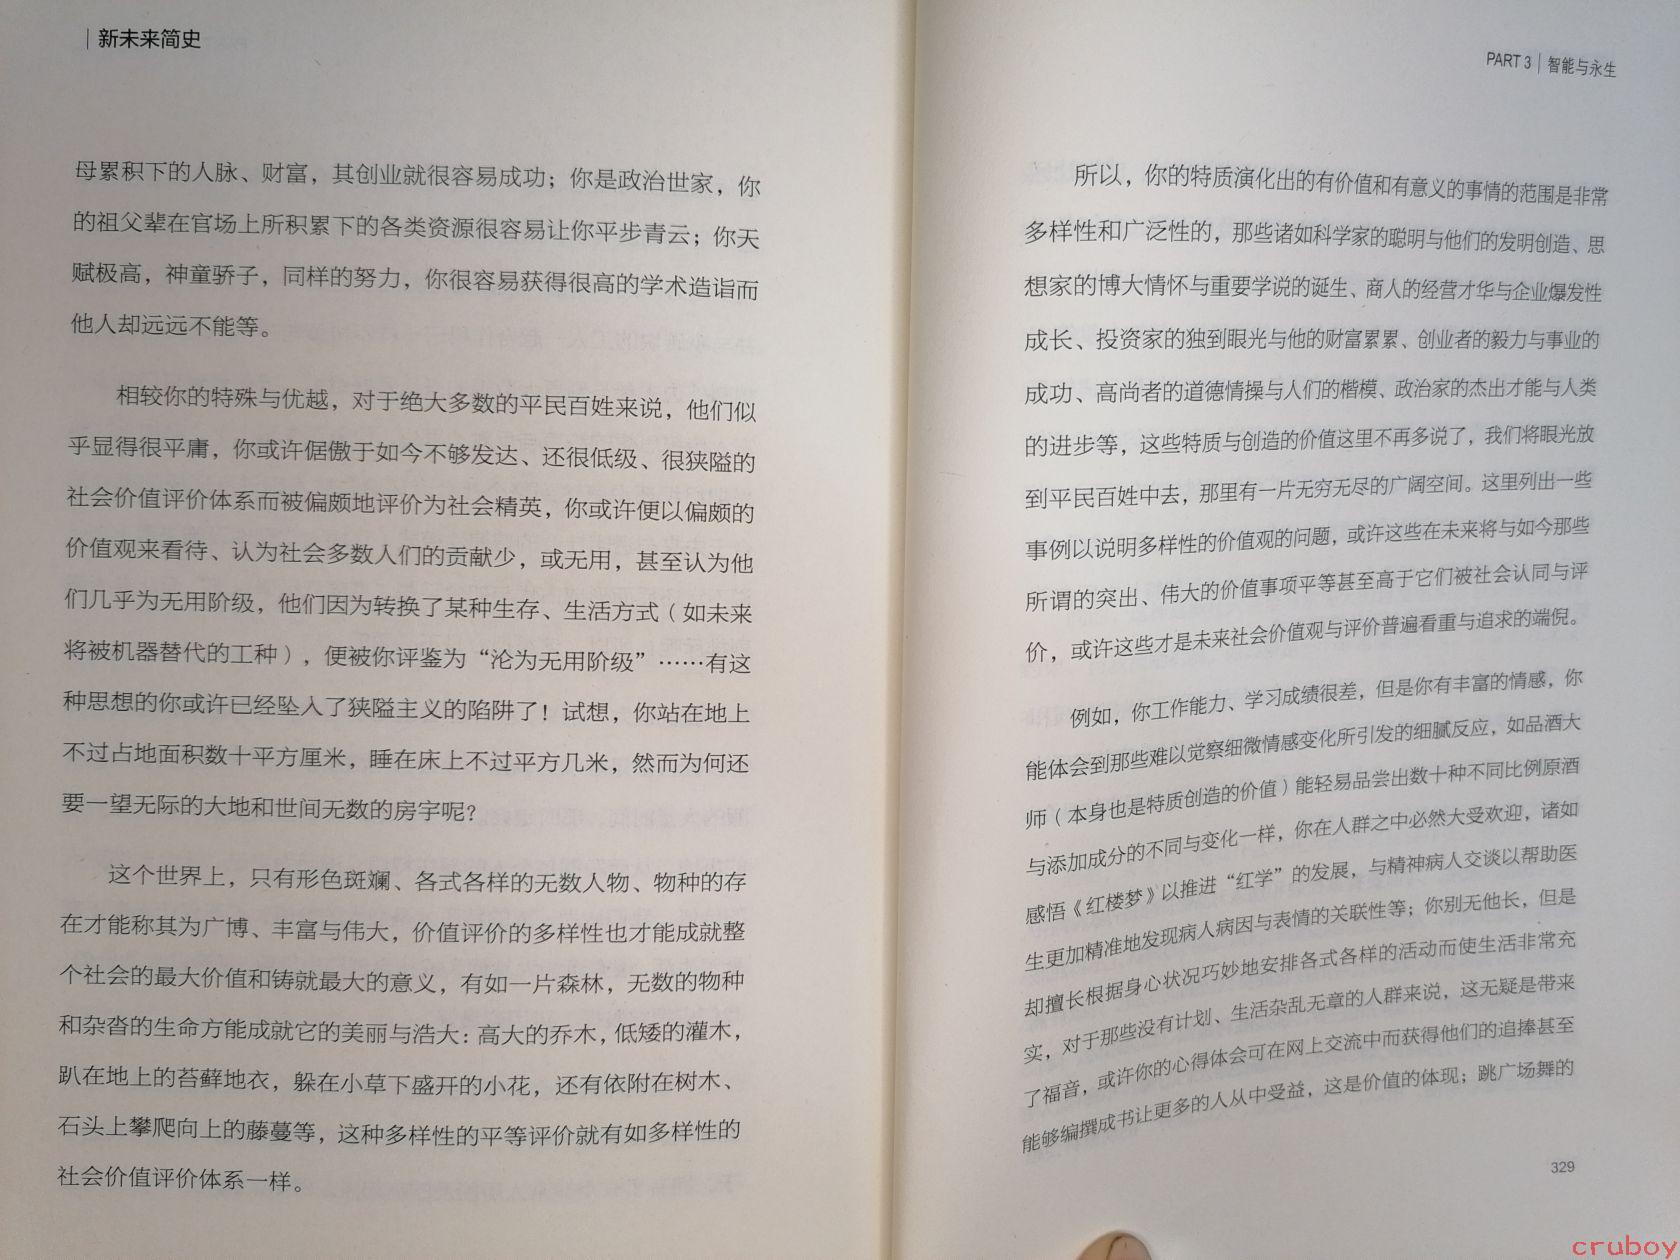 新未来简史
母累积下的人脉、财富，其创业就很容易成功；你是政治世家，你
的祖父辈在官场上所积累下的各类资源很容易让你平步青云；你天
赋极高，神童骄子，同样的努力，你很容易获得很高的学术造诣而
他人却远远不能等。
相较你的特殊与优越，对于绝大多数的平民百姓来说，他们似
乎显得很平庸，你或许倨傲于如今不够发达、还很低级、很狭隘的
社会价值评价体系而被偏颇地评价为社会精英，你或许便以偏颇的
价值观来看待、认为社会多数人们的贡献少，或无用，甚至认为他
们几乎为无用阶级，他们因为转换了某种生存、生活方式（如未来
将被机器替代的工种），便被你评鉴为“沦为无用阶级”……有这
种思想的你或许已经坠入了狭隘主义的陷阱了！试想，你站在地上
不过占地面积数十平方厘米，睡在床上不过平方几米，然而为何还
要一望无际的大地和世间无数的房宇呢？
这个世界上，只有形色斑斓、各式各样的无数人物、物种的存
在才能称其为广博、丰富与伟大，价值评价的多样性也才能成就整
个社会的最大价值和铸就最大的意义，有如一片森林，无数的物种
和杂沓的生命方能成就它的美丽与浩大：高大的乔木，低矮的灌木，
趴在地上的苔藓地衣，躲在小草下盛开的小花，还有依附在树木、
石头上攀爬向上的藤蔓等，这种多样性的平等评价就有如多样性的
社会价值评价体系一样。
PART 3 | 智能与永生
所以，你的特质演化出的有价值和有意义的事情的范围是非常
多样性和广泛性的，那些诸如科学家的聪明与他们的发明创造、思
想家的博大情怀与重要学说的诞生、商人的经营才华与企业爆发性
成长、投资家的独到眼光与他的财富累累、创业者的毅力与事业的
成功、高尚者的道德情操与人们的楷模、政治家的杰出才能与人类
的进步等，这些特质与创造的价值这里不再多说了，我们将眼光放
到平民百姓中去，那里有一片无穷无尽的广阔空间。这里列出一些
事例以说明多样性的价值观的问题，或许这些在未来将与如今那些
所谓的突出、伟大的价值事项平等甚至高于它们被社会认同与评
价，或许这些才是未来社会价值观与评价普遍看重与追求的端倪。
例如，你工作能力、学习成绩很差，但是你有丰富的情感，你
能体会到那些难以觉察细微情感变化所引发的细腻反应，如品酒大
师（本身也是特质创造的价值）能轻易品尝出数十种不同比例原酒
与添加成分的不同与变化一样，你在人群之中必然大受欢迎，诸如
感悟《红楼梦》以推进“红学”的发展，与精神病人交谈以帮助医
生更加精准地发现病人病因与表情的关联性等；你别无他长，但是
却擅长根据身心状况巧妙地安排各式各样的活动而使生活非常充
实，对于那些没有计划、生活杂乱无章的人群来说，这无疑是带来
了福音，或许你的心得体会可在网上交流中而获得他们的追捧甚至
能够编撰成书让更多的人从中受益，这是价值的体现；跳广场舞的
329
cruboy